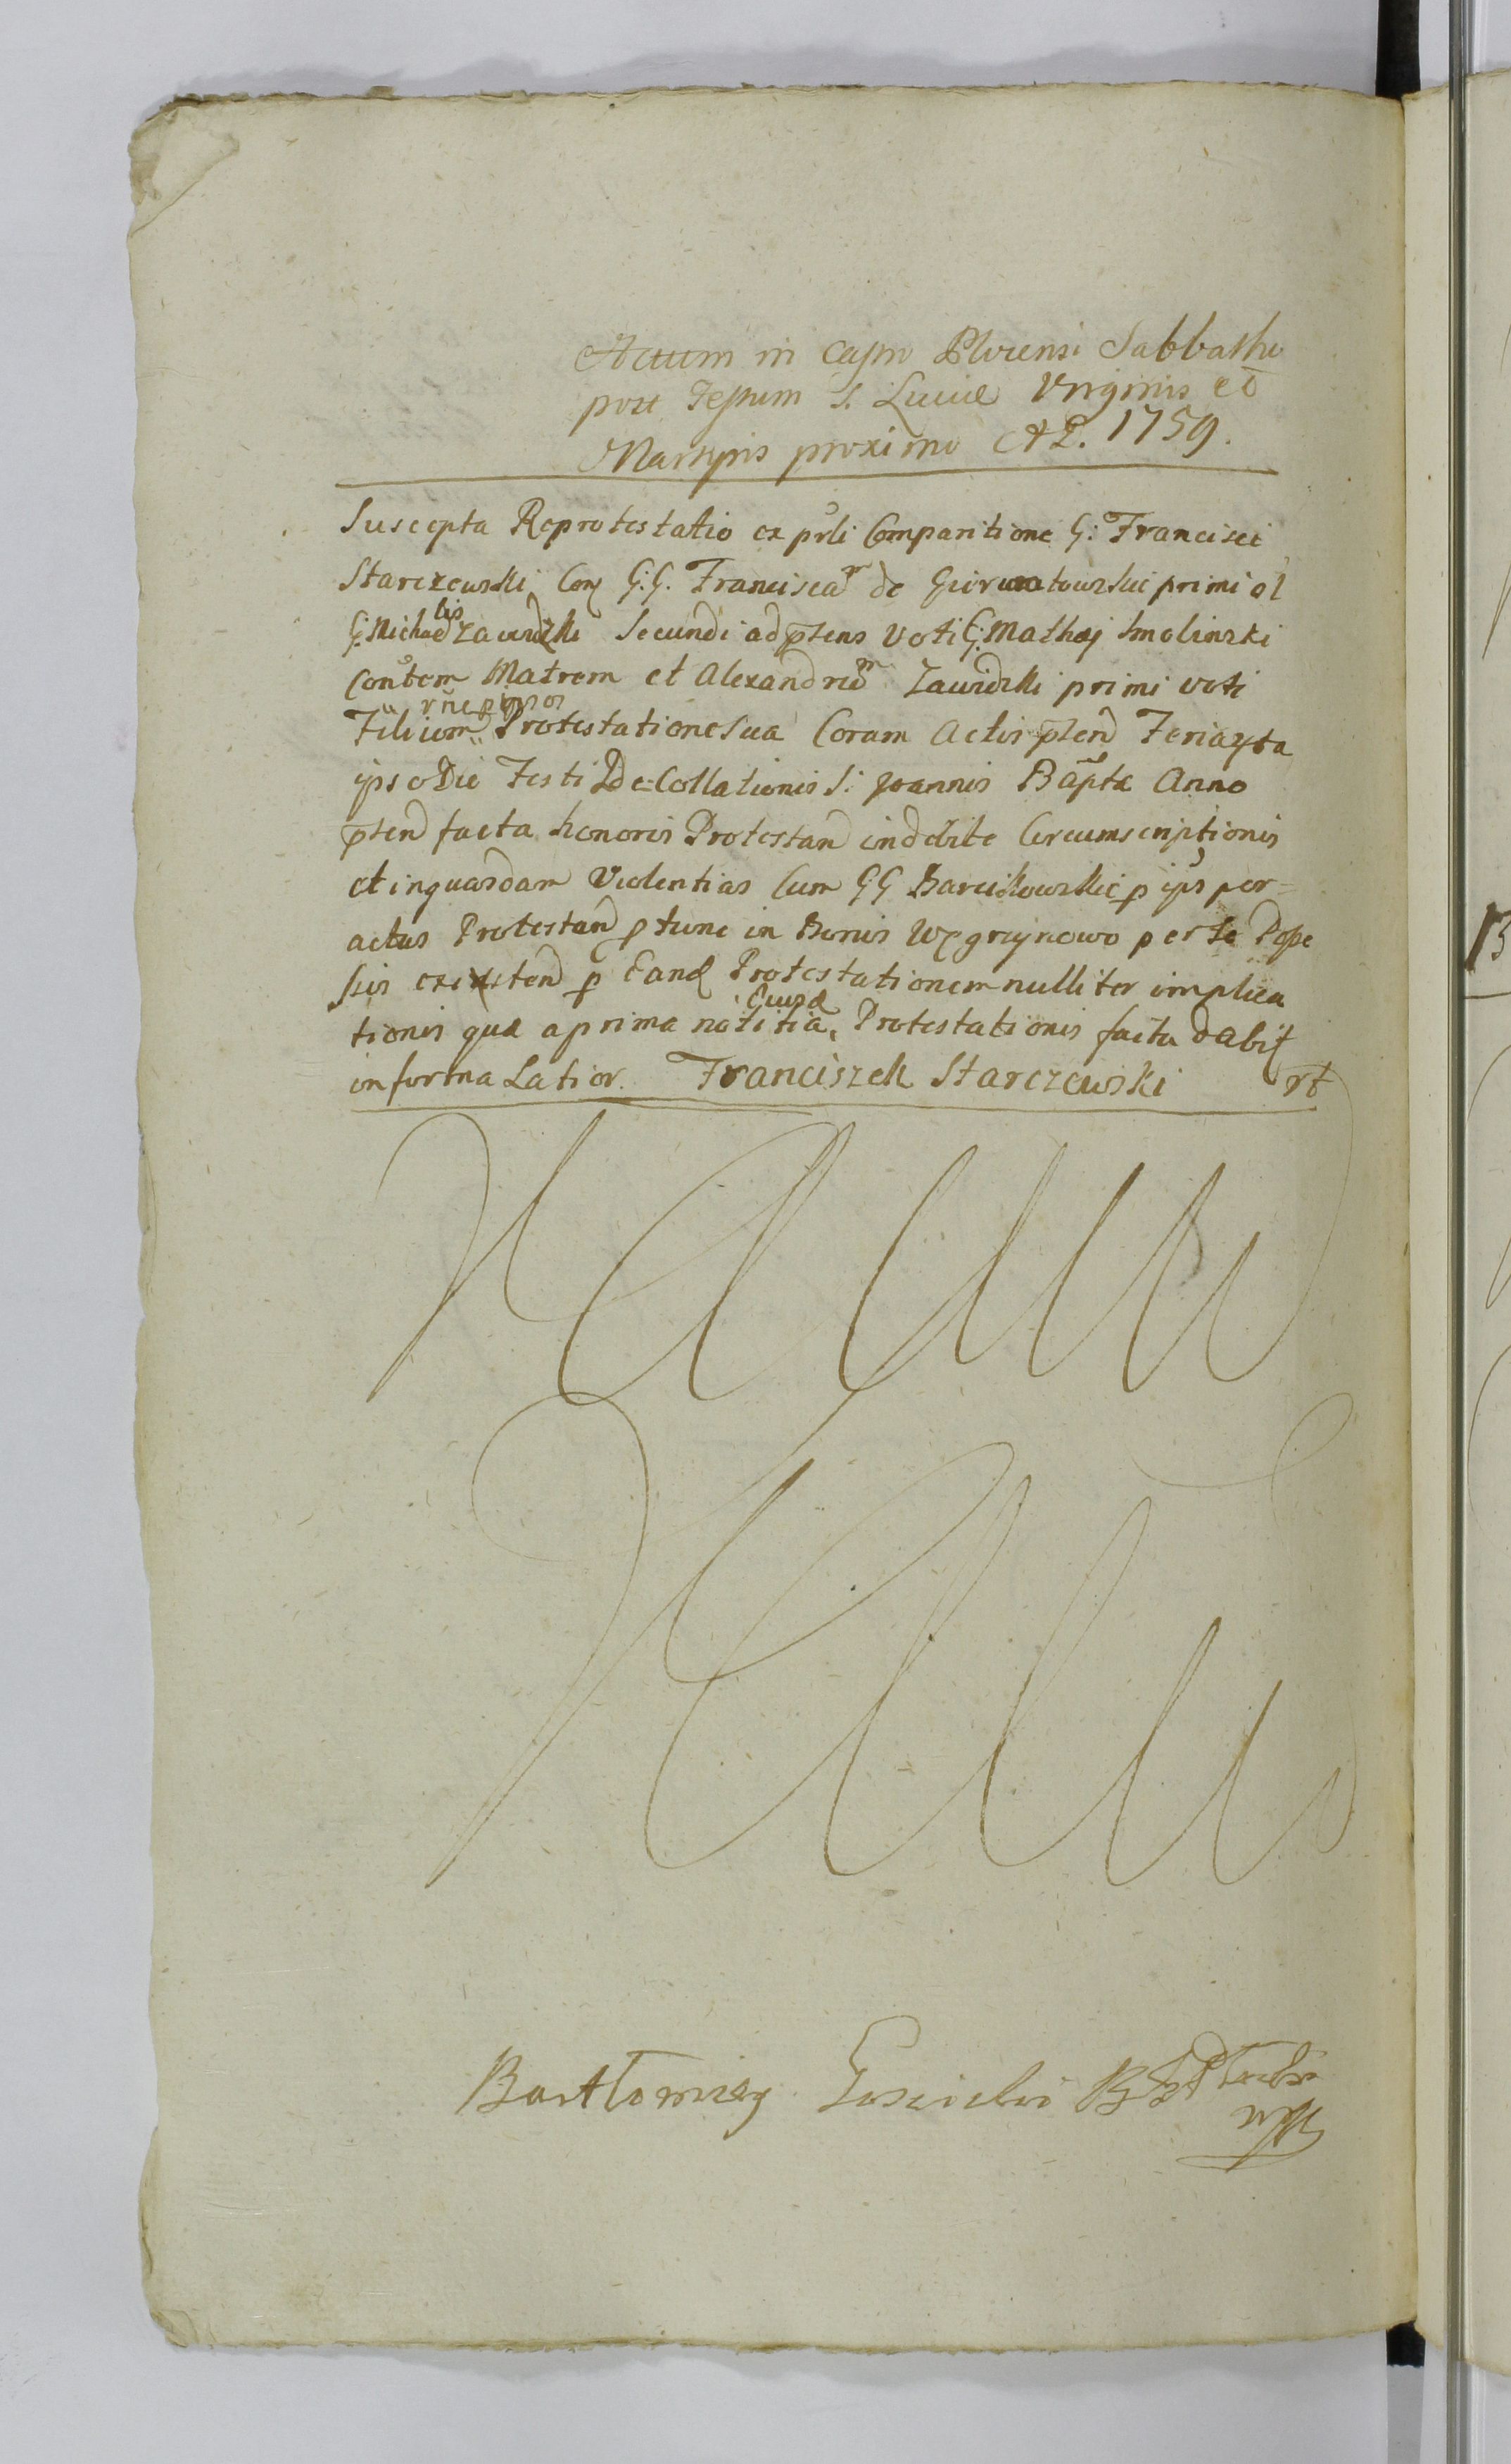 Actum in Castro Plocensi Sabbatho
post Festum S. Luciæ Virginis et
Martyris proximo A D. 1759.
Suscepta Reprotestatio ex psli Comparitione G: Francisci
Starczewski Con G:G. Franciscam de primi ol
G: Michaelis Zawidzki Secundi ad pstens Voti G: Mathæj Smolinski
Contem Matrem et Alexandrum Zawidzki primi voti
Filium rne ipsor Protestatione Sua Coram Actis pstend Feria 4ta
ipso Die Festi De=Collationis S: Joannis Bapta Anno
pstend facta honoris Protestan indebite Circumscriptionis
et in quasdam Violentias Cum GG p ips per=
actas Protestan p tunc in Bonis per se Posse
ssis existen p Eand Protestationem nulliter implica
tionis quæ a prima notitia Eiusd Protestationis facta dabit
in forma Latior. Franciszek Starczewski rt
Bartlomiey
mpp
13